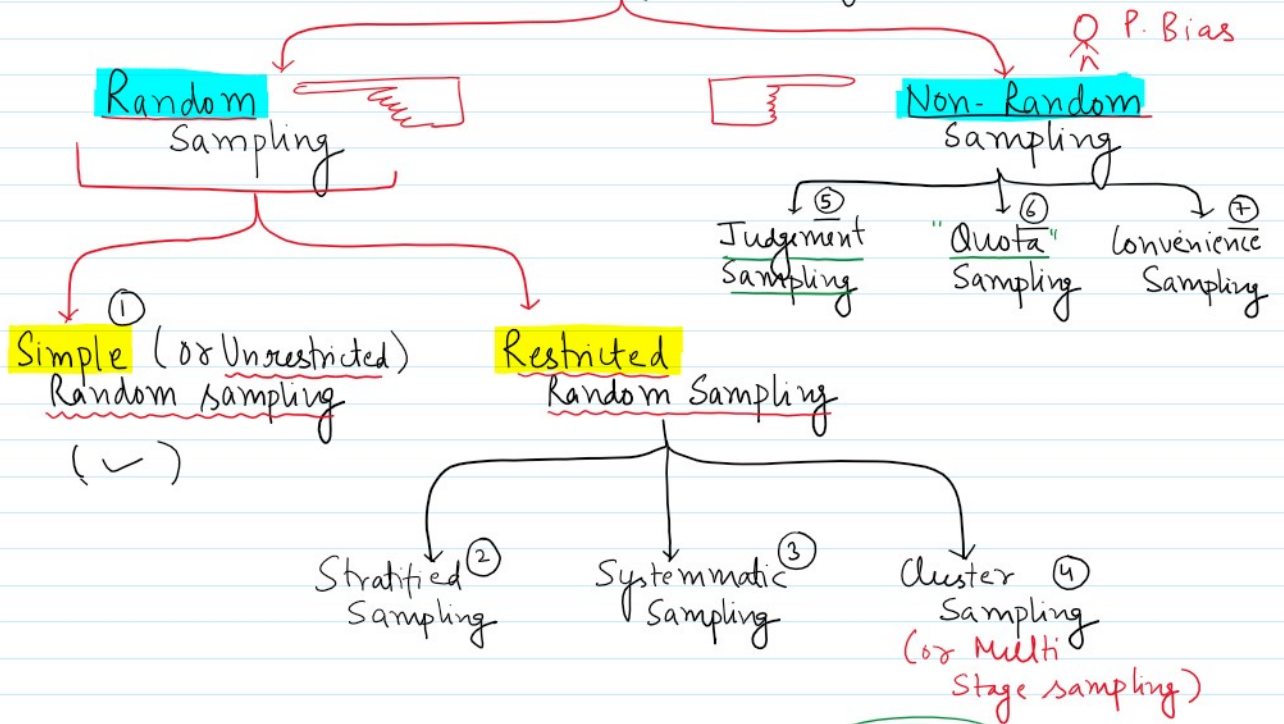 P. Bias
Random
Sampling
Non-Random
Sampling
5
Judgement
Sampling
6
"Quota"
Sampling
7
Convenience
Sampling
1
Simple (or Unrestricted)
Random sampling
Restricted
Random Sampling
Stratified 2
Sampling
Systemmatic 3
Sampling
Cluster 4
Sampling
(or Multi
Stage sampling)